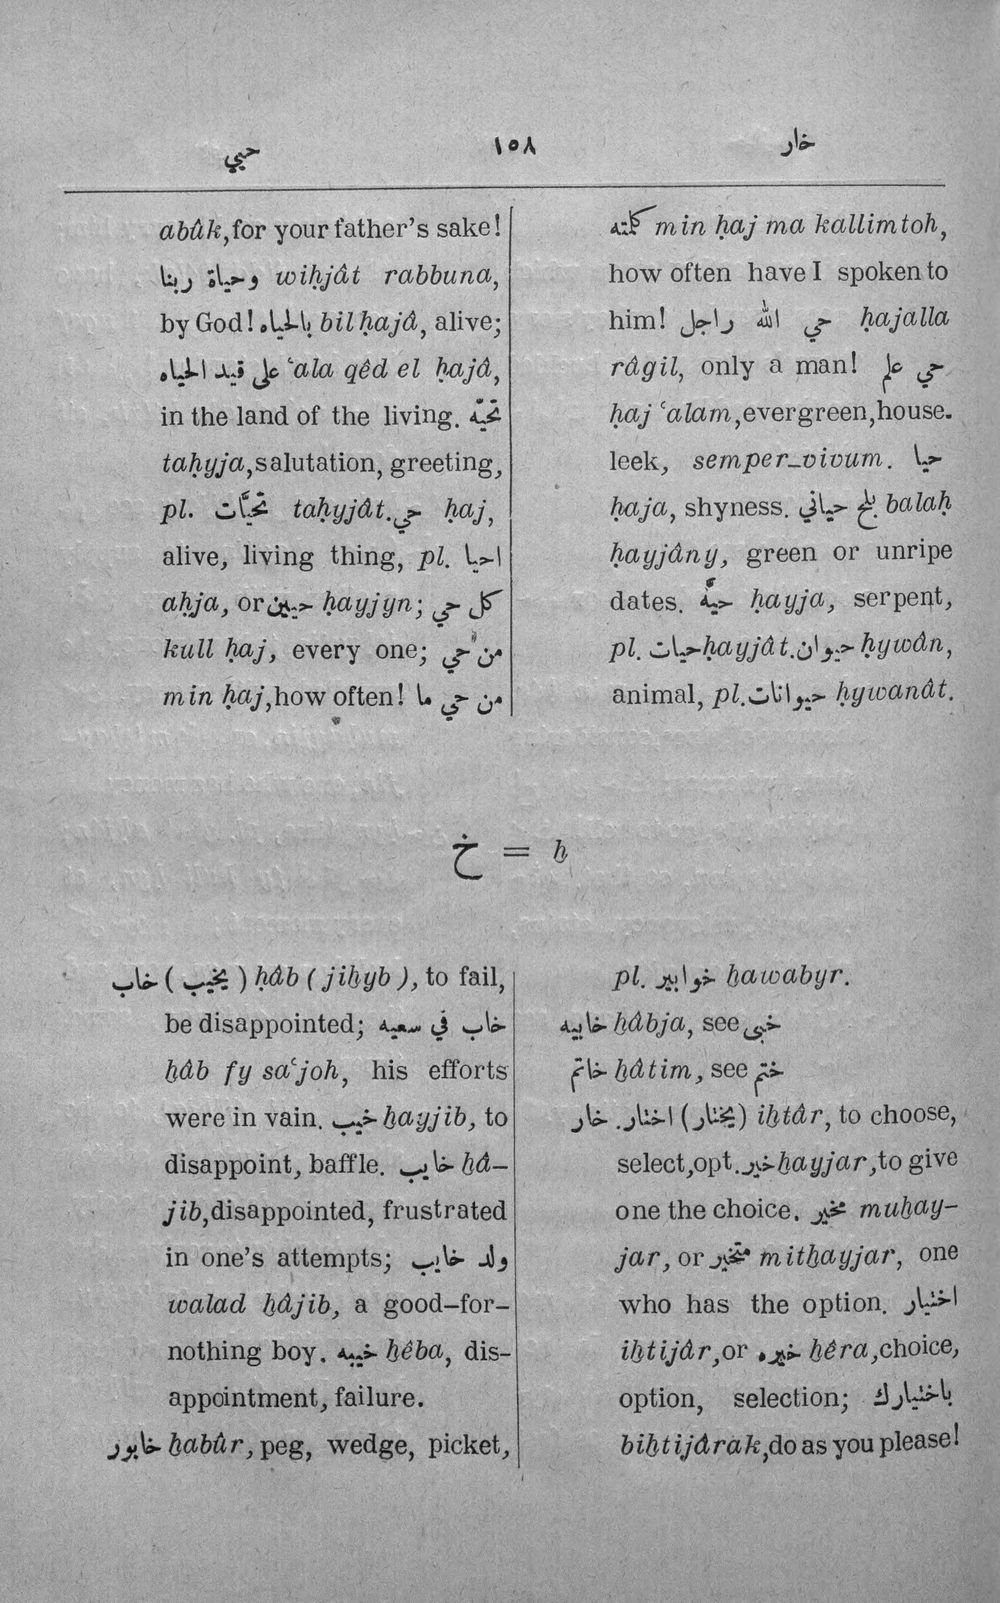 حيي ١٥٨ خار
abûk, for your father's sake!
وحياة ربنا wiḥjât rabbuna,
by God! بالحياه bilḥajâ, alive;
على قيد الحياه ʿala qêd el ḥajâ,
in the land of the living. تحيّه
taḥyja, salutation, greeting,
pl. تحيَّات taḥyjât. حي ḥaj,
alive, living thing, pl. احيا
aḥja, or حيين ḥayjyn; كل حي
kull ḥaj, every one; من حي
min ḥaj, how often! من حي ما
كلته min ḥaj ma kallimtoh,
how often have I spoken to
him! حي الله راجل ḥajalla
râgil, only a man! حي علم
ḥaj ʿalam, evergreen, house-
leek, semper-vivum. حيا
ḥaja, shyness. بلح حياني balaḥ
ḥayjâny, green or unripe
dates. حيَّه ḥayja, serpent,
pl. حيات ḥayjât. حيوان ḥywân,
animal, pl. حيوانات ḥywanât.
خ = ẖ
خاب (يخيب) ḥâb (jiẖyb), to fail,
be disappointed; خاب في سعيه
ẖâb fy saʿjoh, his efforts
were in vain. خيب ẖayjib, to
disappoint, baffle. خايب ẖâ-
jib, disappointed, frustrated
in one's attempts; ولد خايب
walad ẖâjib, a good-for-
nothing boy. خيبه ẖêba, dis-
appointment, failure.
خابور ẖabûr, peg, wedge, picket,
pl. خوابير ẖawabyr.
خابيه ẖâbja, see خبى
خاتم ẖâtim, see ختم
خار. اختار (يختار) iẖtâr, to choose,
select, opt. خير ẖayjar, to give
one the choice. مخير muẖay-
jar, or متخير mitẖayjar, one
who has the option. اختيار
iẖtijâr, or خيره ẖêra, choice,
option, selection; باختيارك
biẖtijârak, do as you please!